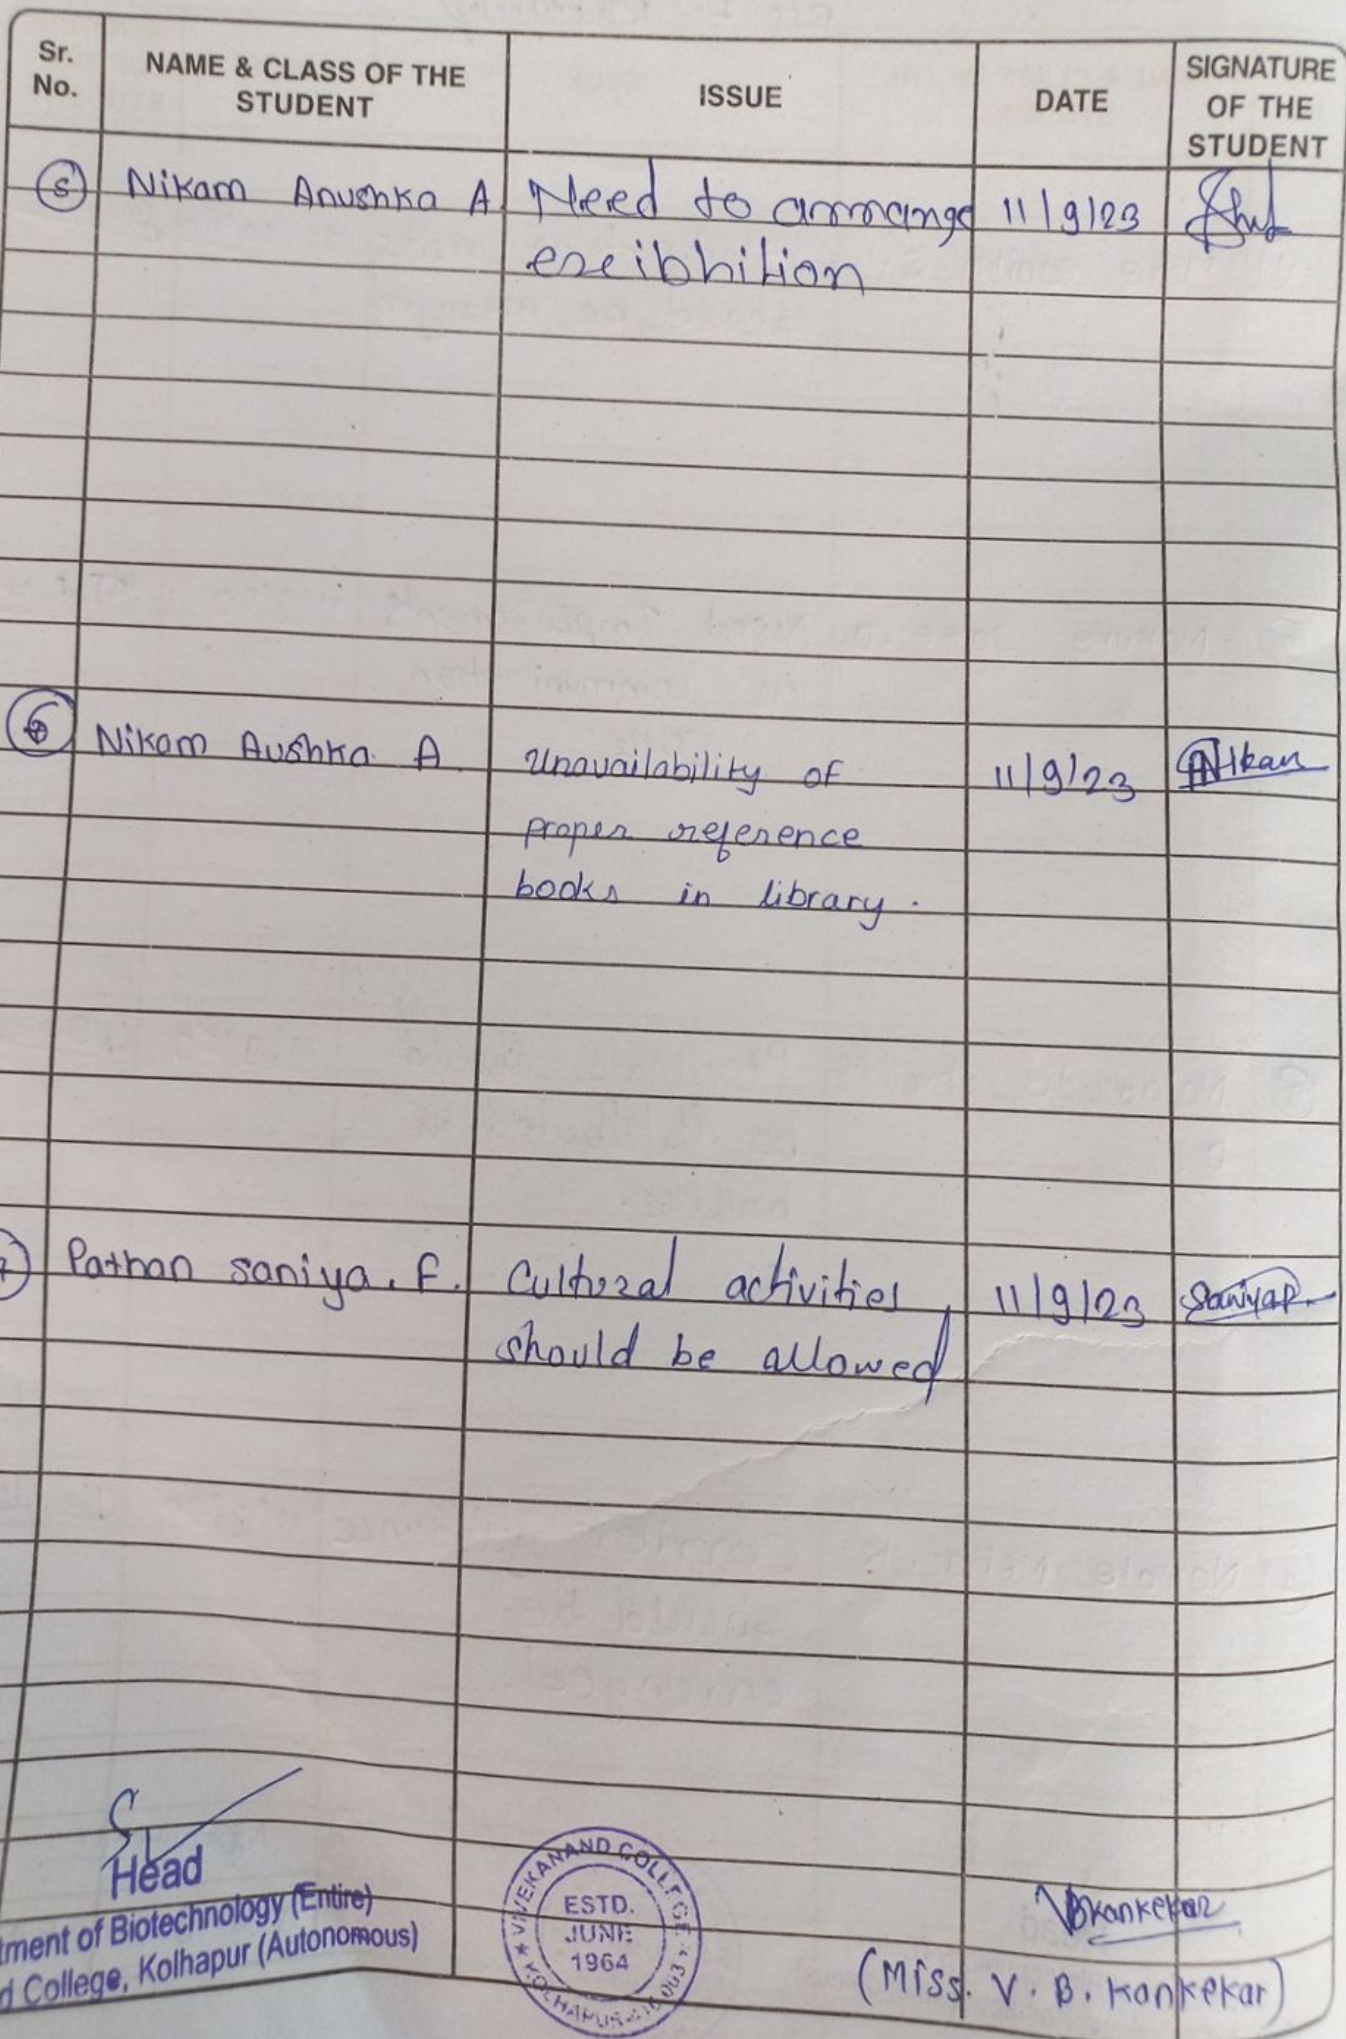 Sr. No. NAME & CLASS OF THE STUDENT ISSUE DATE SIGNATURE OF THE STUDENT
5 Nikam Anushka A Need to arrange 11/9/23
exeibhition
6 Nikam Aushka A Unavailability of 11/9/23 ANikam
proper reference
books in library.
7 Pathan saniya. F. Cultural activities 11/9/23 SaniyaP
should be allowed
Head
tment of Biotechnology (Entire)
d College, Kolhapur (Autonomous)
VIVEKANAND COLLEGE
ESTD.
JUNE
1964
KOLHAPUR
VBKankekar
(Miss. V. B. Kankekar)